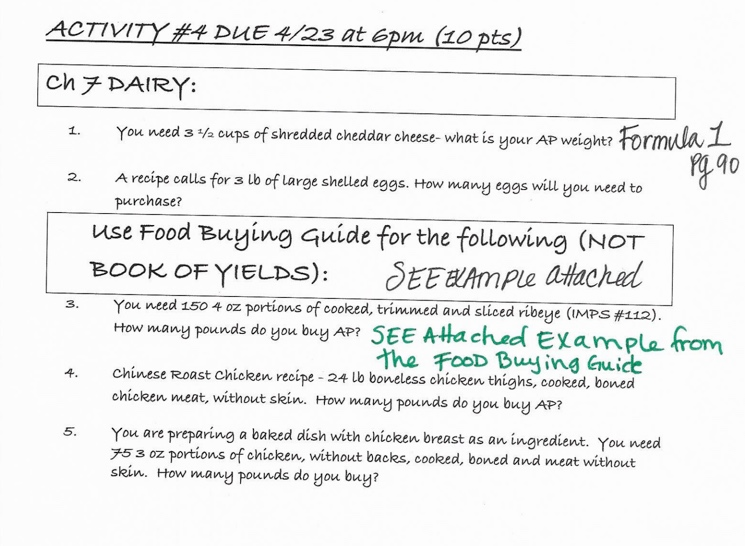 ACTIVITY #4 DUE 4/23 at 6pm (10 pts)
Ch 7 DAIRY:
1. You need 3 1/2 cups of shredded cheddar cheese- what is your AP weight? Formula 1
Pg 90
2. A recipe calls for 3 lb of large shelled eggs. How many eggs will you need to
purchase?
Use Food Buying Guide for the following (NOT
BOOK OF YIELDS): SEE EXAMPLE attached
3. You need 150 4 oz portions of cooked, trimmed and sliced ribeye (IMPS #112).
How many pounds do you buy AP? SEE Attached EXample from
the FOOD Buying Guide
4. Chinese Roast Chicken recipe - 24 lb boneless chicken thighs, cooked, boned
chicken meat, without skin. How many pounds do you buy AP?
5. You are preparing a baked dish with chicken breast as an ingredient. You need
75 3 oz portions of chicken, without backs, cooked, boned and meat without
skin. How many pounds do you buy?